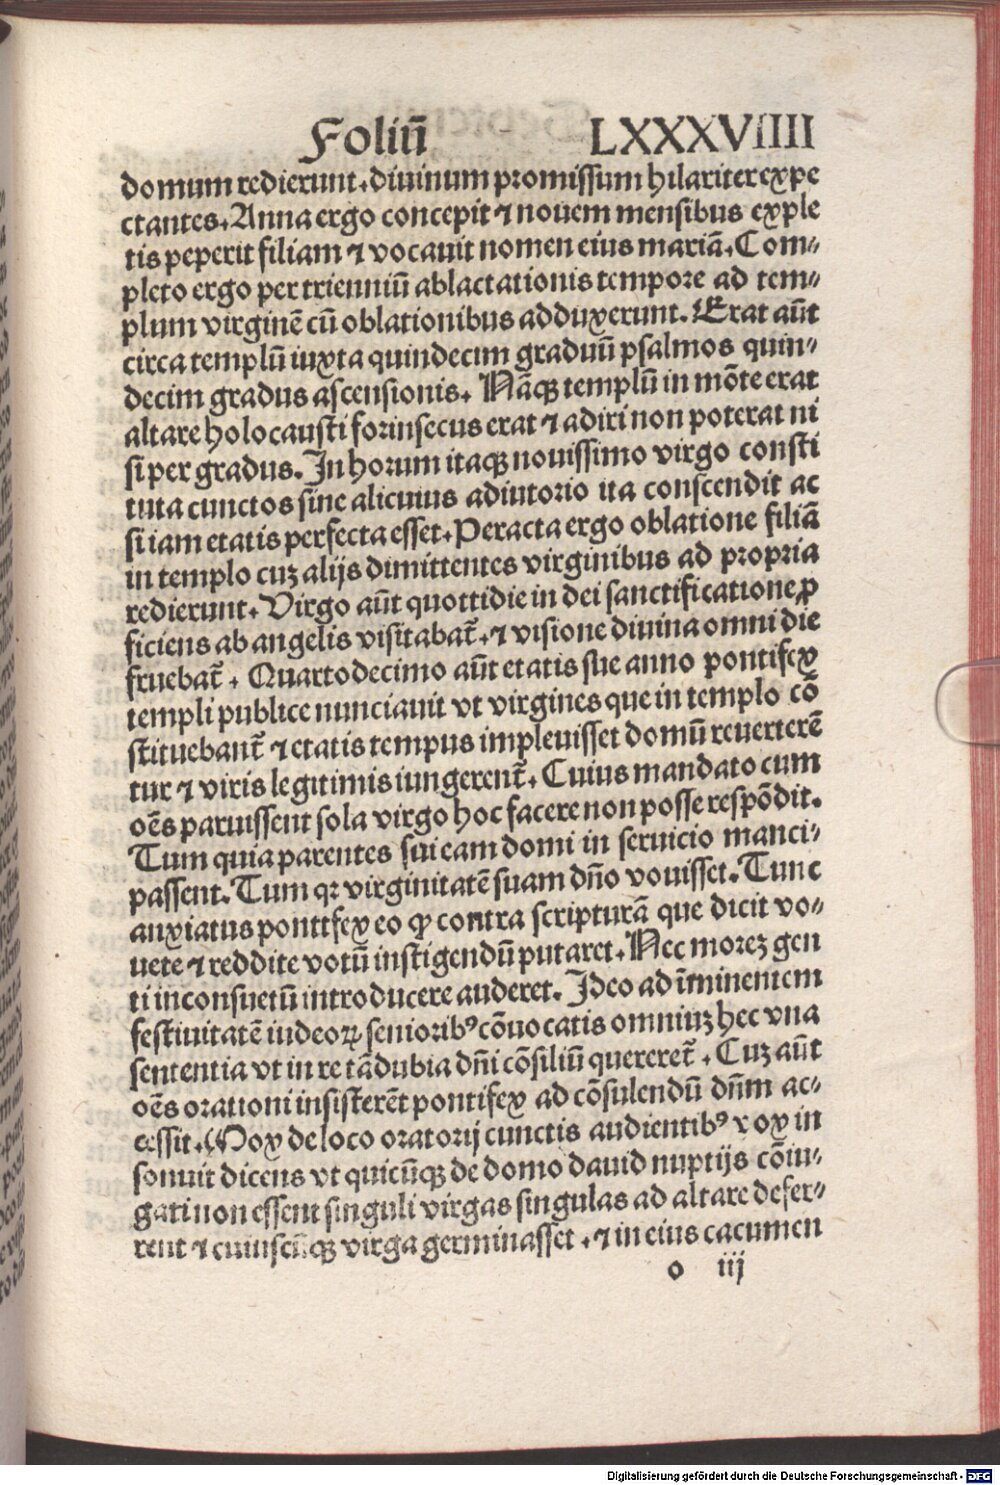 Foliū LXXXVIIII
domum redierunt. diuinum promissum hilariter expe
ctantes. Anna ergo concepit ⁊ nouem mensibus exple
tis peperit filiam ⁊ vocauit nomen eius mariā. Com-
pleto ergo per trienniū ablactationis tempore ad tem-
plum virginē cū oblationibus adduxerunt. Erat aūt
circa templū iuxta quindecim graduū psalmos quin-
decim gradus ascensionis. Nāqꝫ templū in mōte erat
altare holocausti forinsecus erat ⁊ adiri non poterat ni
si per gradus. In horum itaqꝫ nouissimo virgo consti
tuta cunctos sine alicuius adiutorio ita conscendit ac
si iam etatis perfecta esset. Peracta ergo oblatione filiā
in templo cuꝫ alijs dimittentes virginibus ad propria
redierunt. Virgo aūt quottidie in dei sanctificatione ꝓ
ficiens ab angelis visitabat̄. ⁊ visione diuina omni die
fruebat̄. Quartodecimo aūt etatis sue anno pontifex
templi publice nunciauit vt virgines que in templo cō
stituebant̄ ⁊ etatis tempus impleuisset domū reuerterē
tur ⁊ viris legitimis iungerent̄. Cuius mandato cum
oēs paruissent sola virgo hoc facere non posse respōdit.
Tum quia parentes sui eam domi in seruicio manci-
passent. Tum qꝛ virginitatē suam dn̄o vouisset. Tunc
anxiatus ponttfex eo ꝙ contra scripturā que dicit vo-
uete ⁊ reddite votū instigendū putaret. Nec moreꝫ gen
ti inconsuetū introducere auderet. Ideo ad īminentem
festiuitatē iudeoꝝ seniorib⁹ cōuocatis omniuꝫ hec vna
sententia vt in re tā dubia dn̄i cōsiliū quereret̄. Cuꝫ aūt
oēs orationi insisterēt pontifex ad cōsulendū dn̄m ac-
cessit. Mox de loco oratorij cunctis audientib⁹ vox in
sonuit dicens vt quicūqꝫ de domo dauid nuptijs cōiu-
gati non essent singuli virgas singulas ad altare defer-
rent ⁊ cuiuscūqꝫ virga germinasset. ⁊ in eius cacumen
o iij
Digitalisierung gefördert durch die Deutsche Forschungsgemeinschaft - DFG